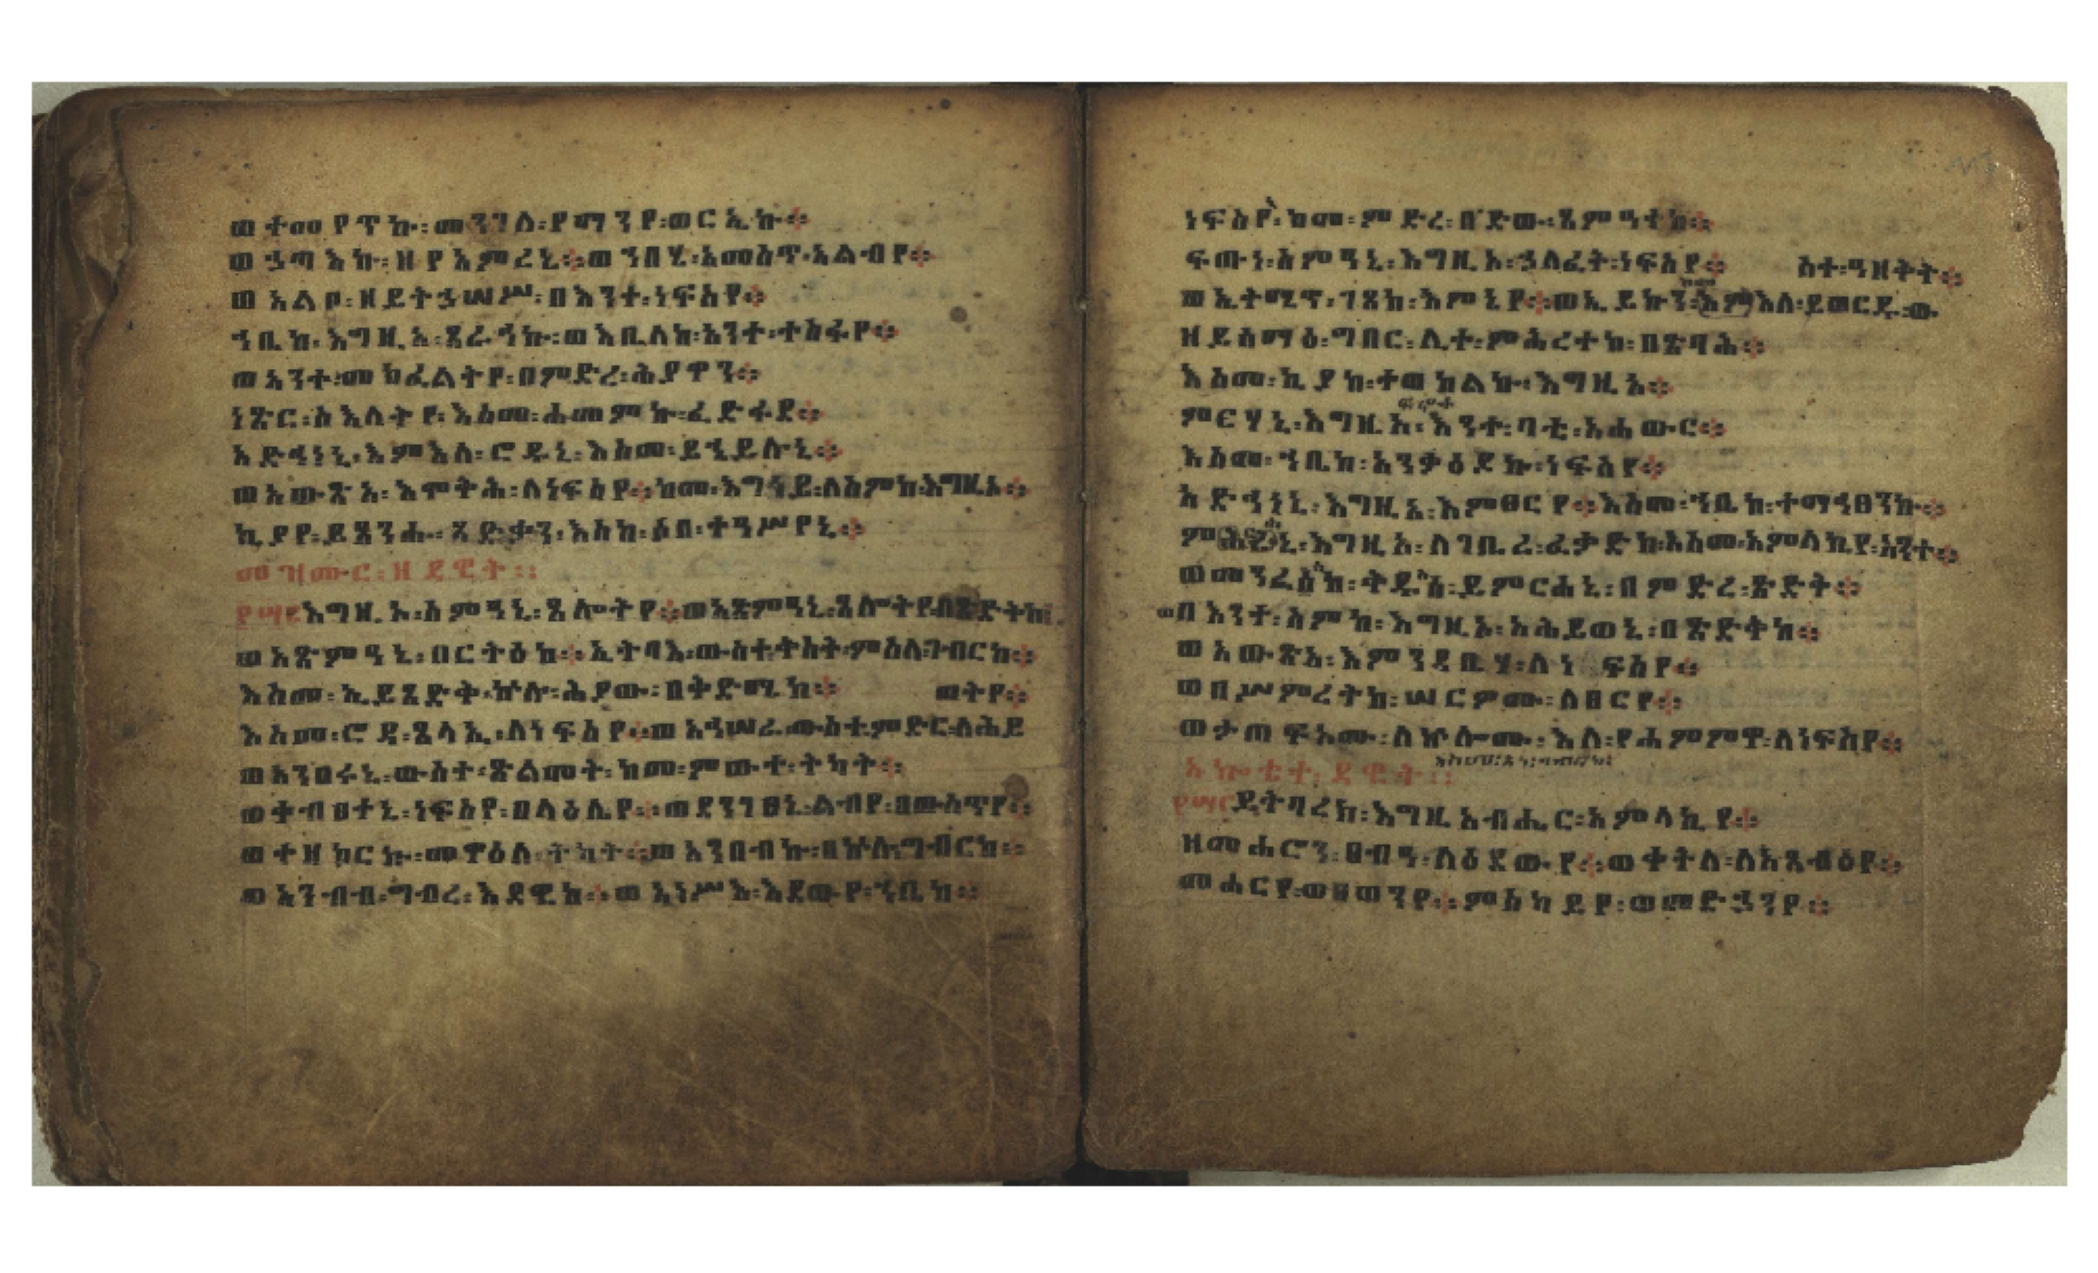 ወተመየጥኩ፡መንገለ፡የማንየ፡ወርኢኩ፨
ወኃጣእኩ፡ዘያአምረኒ፨ወኀበሂ፡አመስጥ፡አልብየ፨
ወአልቦ፡ዘይትኃሠሥ፡በእንተ፡ነፍስየ፨
ኀቤከ፡እግዚአ፡ጸራኅኩ፡ወእቤለከ፡አንተ፡ተስፋየ፨
ወአንተ፡መክፈልትየ፡በምድረ፡ሕያዋን፨
ነጽር፡ስእለትየ፡እስመ፡ሐመምኩ፡ፈድፋደ፨
አድኅነኒ፡እምእለ፡ሮዱኒ፡እስመ፡ይኄይሉኒ፨
ወአውጽአ፡እሞቅሕ፡ለነፍስየ፨ከመ፡እግነይ፡ለስምከ፡እግዚኦ፨
ኪያየ፡ይጸንሑ፡ጻድቃን፡እስከ፡ሶበ፡ተዓሥየኒ፨
መዝሙር፡ዘዳዊት፡፡
እግዚኦ፡ስምዓኒ፡ጸሎትየ፨ወአጽምዓኒ፡ጸሎትየ፡በጽድቅከ፨
ወአጽምዓኒ፡በርትዕከ፨ኢትባእ፡ውስተ፡ቅስት፡ምስለ፡ገብርከ፨
እስመ፡ኢይጸድቅ፡ኵሉ፡ሕያው፡በቅድሜከ፨ ወትየ፨
እስመ፡ሮዳ፡ጸላኢ፡ለነፍስየ፨ወአኅሠራ፡ውስተ፡ምድር፡ለሕይ
ወአንበሩኒ፡ውስተ፡ጽልመት፡ከመ፡ምውተ፡ትካት፨
ወቆብፀተኒ፡ነፍስየ፡በላዕሌየ፨ወደንገፀኒ፡ልብየ፡በውስጥየ፨
ወተዘከርኩ፡መዋዕለ፡ትካት፨ወአንበብኩ፡በኵሉ፡ግብርከ፨
ወአንብብ፡ግብረ፡እደዊከ፨ወአነሥእ፡እደውየ፡ኀቤከ፨
ነፍስየ፡ከመ፡ምድረ፡በድው፡ጸምዓተከ፨
ፍጡነ፡ስምዓኒ፡እግዚኦ፡ኃለፈት፡ነፍስየ፨ ስተ፡ዓዘቅት፨
ወኢትሚጥ፡ገጸከ፡እምኔየ፨ወኢይኩን፡ከመ፡እለ፡ይወርዱ፡ው
ዘይሰማዕ፡ግበር፡ሊተ፡ምሕረተከ፡በጽባሕ፨
እስመ፡ኪያከ፡ተወከልኩ፡እግዚኦ፨
ምርሃኒ፡እግዚኦ፡ፍኖተ፡እንተ፡ባቲ፡አሐውር፨
እስመ፡ኀቤከ፡አንቃዕደኩ፡ነፍስየ፨
አድኅነኒ፡እግዚኦ፡እምፀርየ፨እስመ፡ኀቤከ፡ተማኅፀንኩ፨
ምህረኒ፡እግዚኦ፡ለገቢረ፡ፈቃድከ፡እስመ፡አምላኪየ፡አንተ፨
ወመንፈስከ፡ቅዱስ፡ይምርሐኒ፡በምድረ፡ጽድቅ፨
ወበእንተ፡ስምከ፡እግዚኦ፡አሕይወኒ፡በጽድቅከ፨
ወአውጽአ፡እምንዳቤሃ፡ለነፍስየ፨
ወበሥምረትከ፡ሠርዎሙ፡ለፀርየ፨
ወታጠፍኦሙ፡ለኵሎሙ፡እለ፡የሐምምዋ፡ለነፍስየ፨
አኰቴተ፡ዳዊት፡፡
ይትባረክ፡እግዚአብሔር፡አምላኪየ፨
ዘመሐሮን፡ፀብዓ፡ለዕደውየ፨ወቀትለ፡ለአጻብዕየ፨
መሐርየ፡ወፀወንየ፨ምስካይየ፡ወመድኃንየ፨